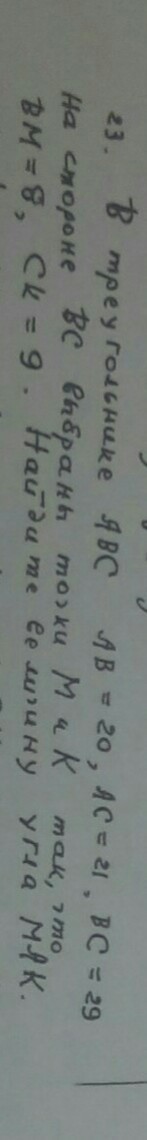 23. В треугольнике ABC AB = 20, AC = 21, BC = 29
На стороне BC выбраны точки M и K так, что
BM = 8, CK = 9. Найдите величину угла MAK.